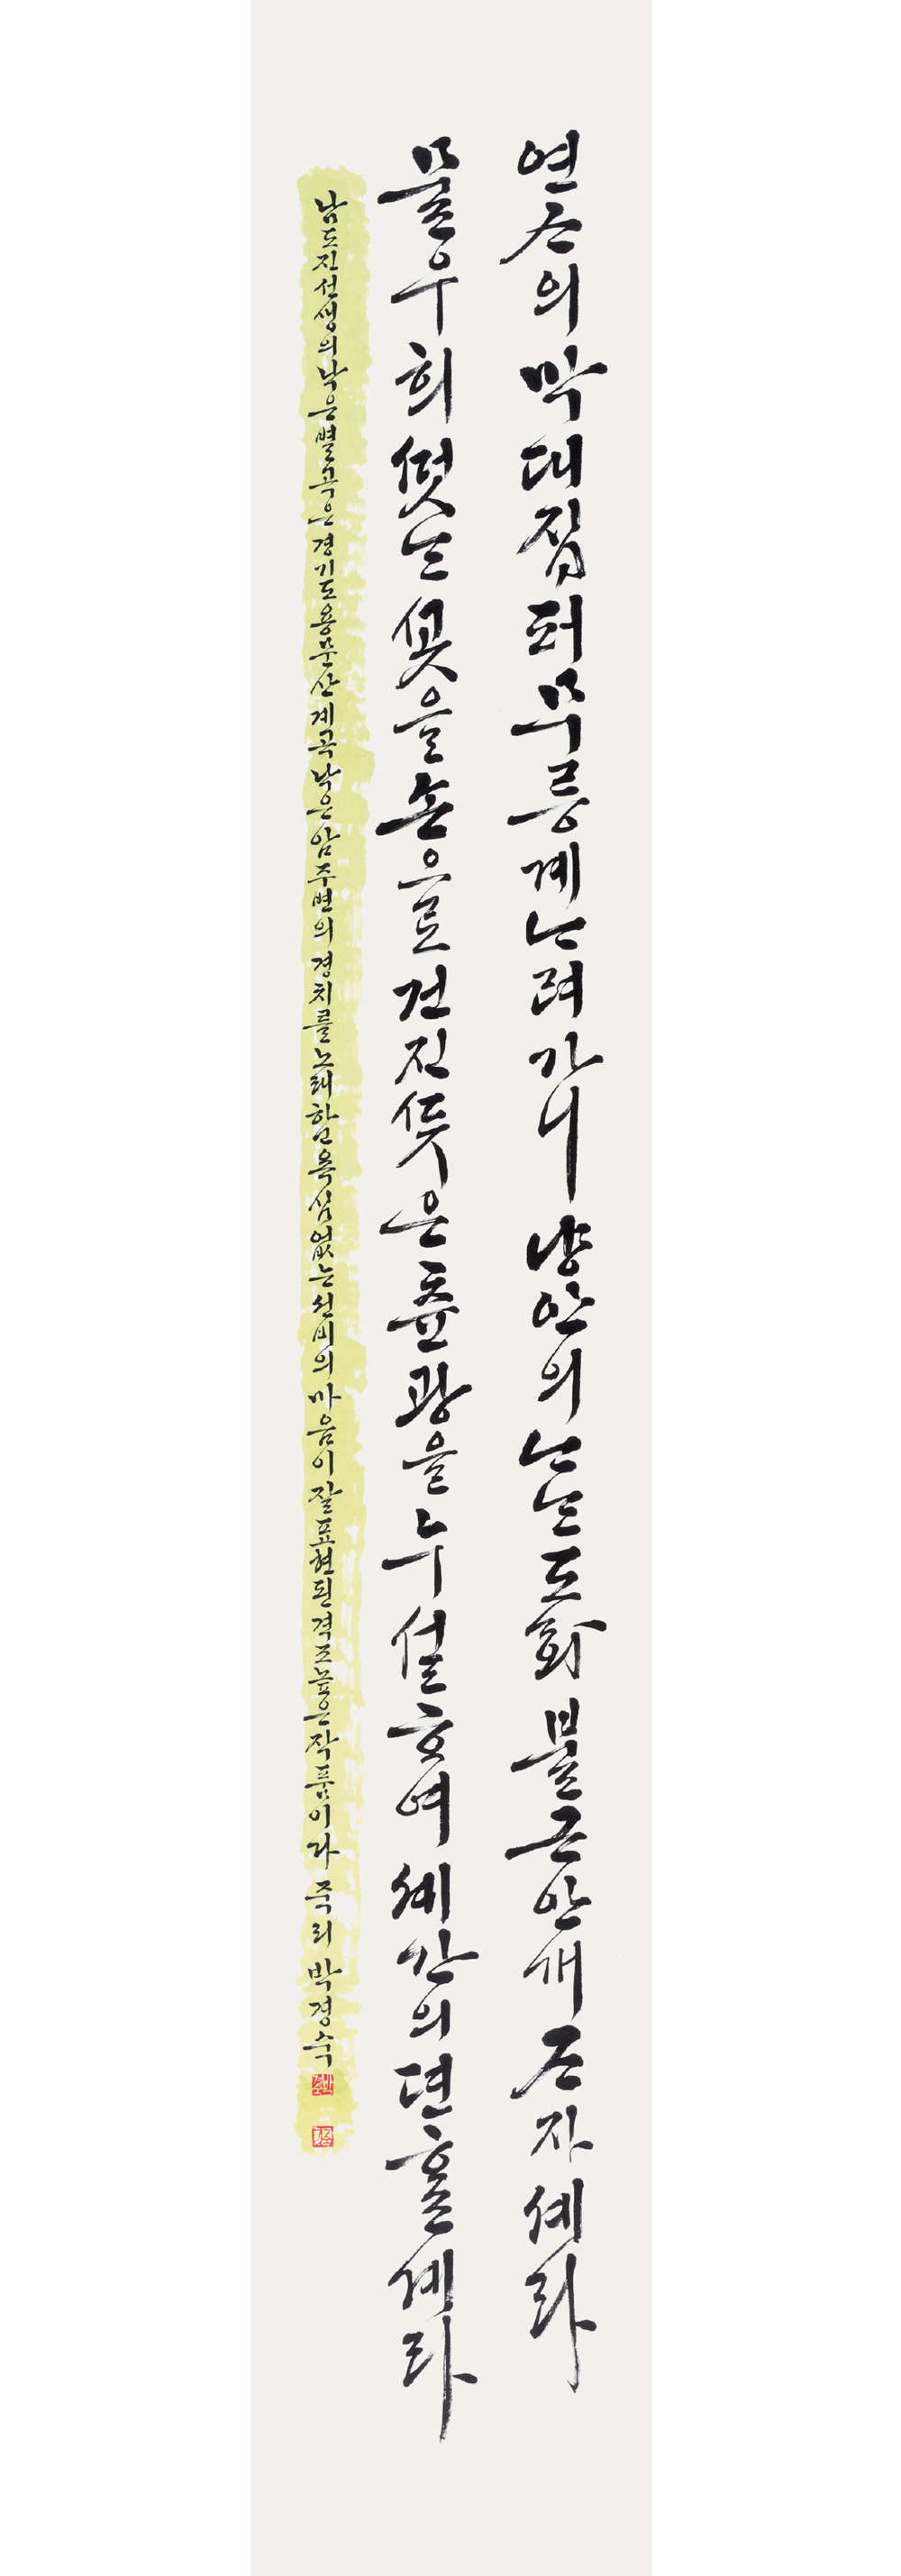 의 막대 집퍼 무릉계 ᄂᆞ려가니 냥안의 ᄂᆞᄂᆞᆫ 도화 블근 안개 ᄌᆞ자셰라
믈 우희 ᄯᅥᆺᄂᆞᆫ ᄭᅩᆺ을 손으로 건진 ᄯᅳᆺ은 츈광을 누셜ᄒᆞ여 셰간의 뎐ᄒᆞᆯ셰라
남도진선생의 낙은별곡은 경기도 용문산 계곡 낙은암 주변의 경치를 노래함 욕심없는 선비의 마음이 잘 표현된 격조높은 작품이라 죽리 박경숙